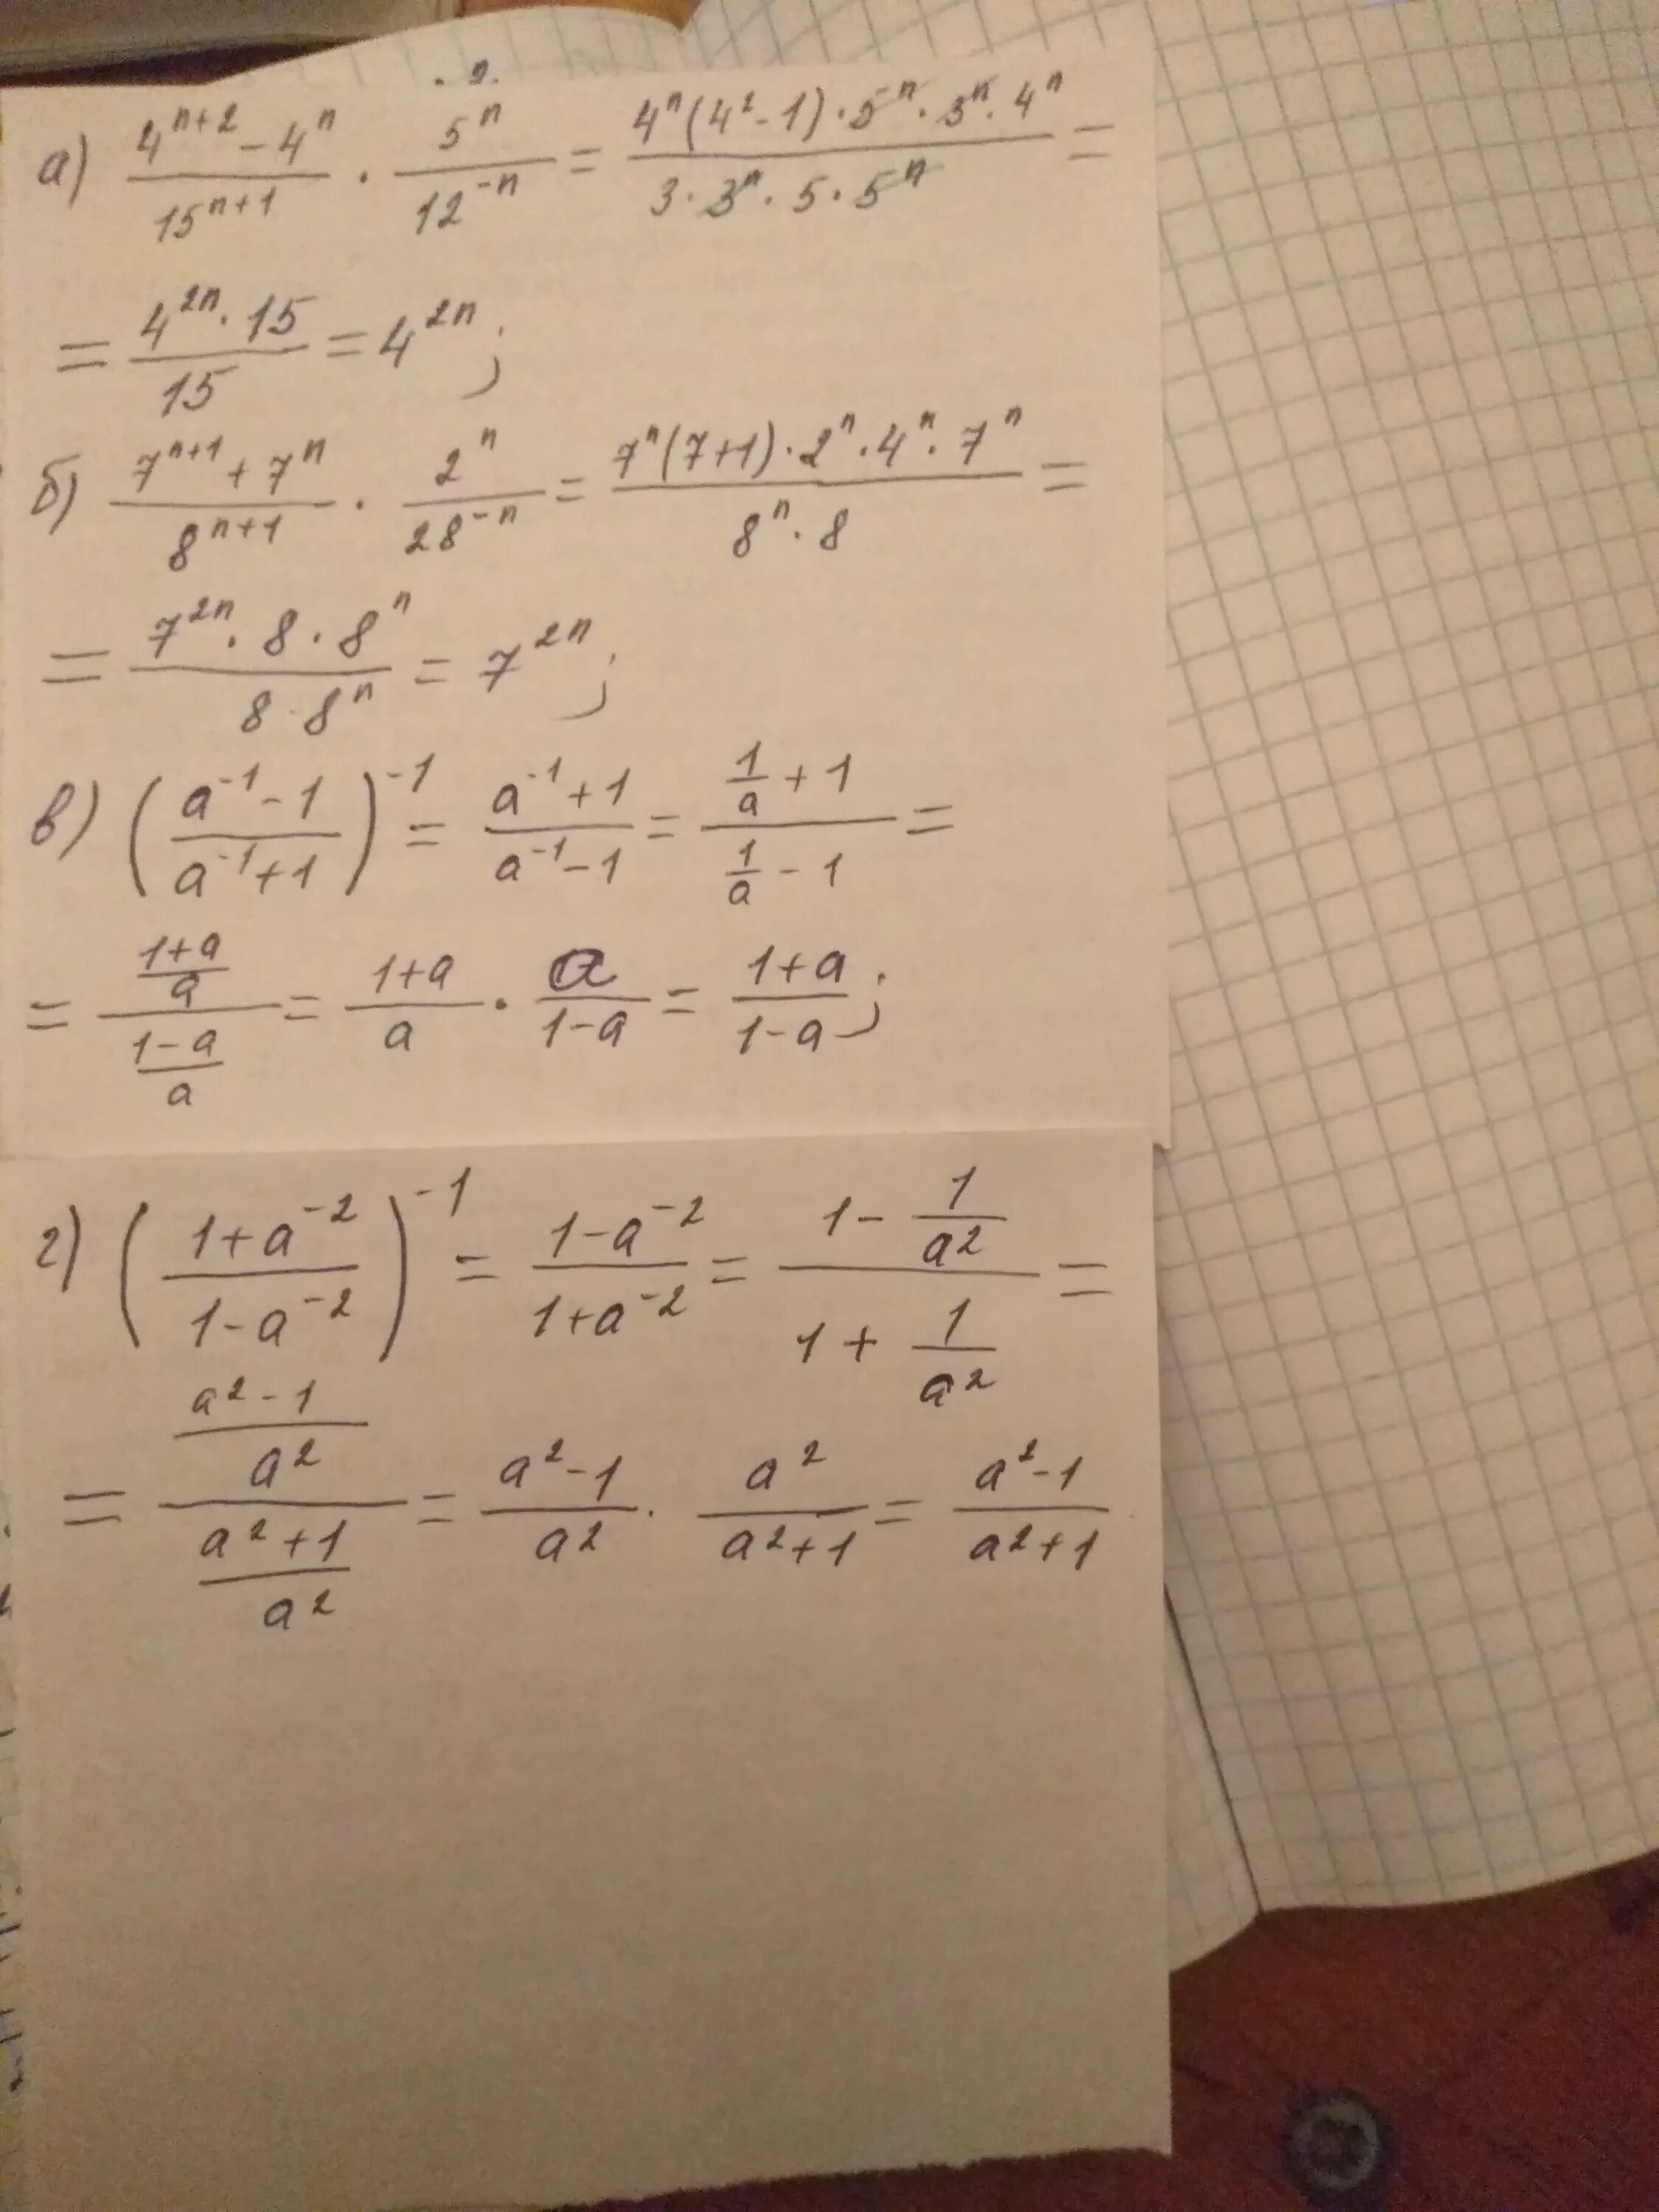 а) (4^{n+2} - 4^n)/(15^{n+1}) · (5^n)/(12^{-n}) = (4^n(4^2 - 1) · 5^n · 3^n · 4^n)/(3 · 3^n · 5 · 5^n) =
= (4^{2n} · 15)/(15) = 4^{2n};
б) (7^{n+1} + 7^n)/(8^{n+1}) · (2^n)/(28^{-n}) = (7^n(7+1) · 2^n · 4^n · 7^n)/(8^n · 8) =
= (7^{2n} · 8 · 8^n)/(8 · 8^n) = 7^{2n};
в) ((a^{-1} - 1)/(a^{-1} + 1))^{-1} = (a^{-1} + 1)/(a^{-1} - 1) = (1/a + 1)/(1/a - 1) =
= ((1+a)/a)/((1-a)/a) = (1+a)/a · a/(1-a) = (1+a)/(1-a);
г) ((1+a^{-2})/(1-a^{-2}))^{-1} = (1-a^{-2})/(1+a^{-2}) = (1 - 1/a^2)/(1 + 1/a^2) =
= ((a^2-1)/a^2)/((a^2+1)/a^2) = (a^2-1)/a^2 · a^2/(a^2+1) = (a^2-1)/(a^2+1)